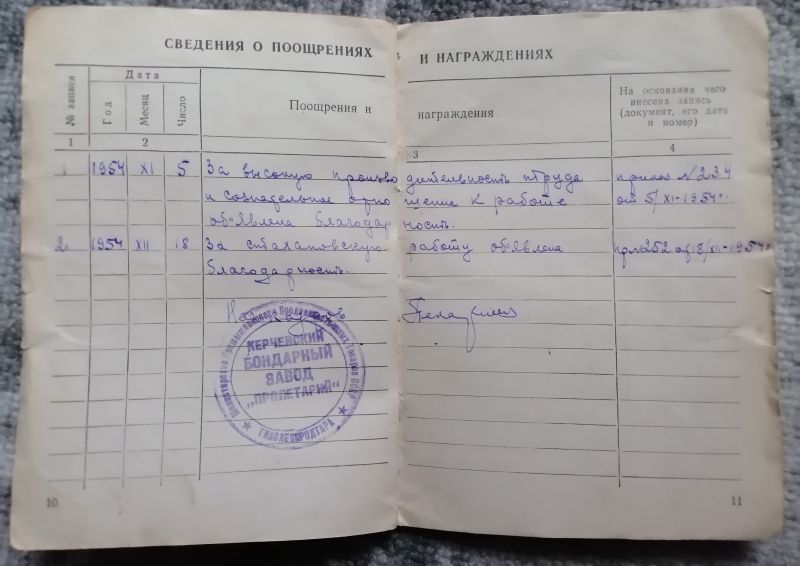 СВЕДЕНИЯ О ПООЩРЕНИЯХ И НАГРАЖДЕНИЯХ
№ записи
Дата
Год
Месяц
Число
Поощрения и награждения
На основании чего
внесена запись
(документ, его дата
и номер)
1 2 3 4
1 1954 XI 5 За высокую производительность труда приказ №234
и сознательное отношение к работе от 5/XI-1954г.
объявлена благодарность.
2. 1954 XII 18 За стахановскую работу объявлена пр.№252 от 18/XII-1954г.
благодарность.
Министерство Промышленности Продовольственных Товаров СССР
КЕРЧЕНСКИЙ
БОНДАРНЫЙ
ЗАВОД
„ПРОЛЕТАРИЙ“
ГЛАВЛЕСПРОДТАРА
10
11